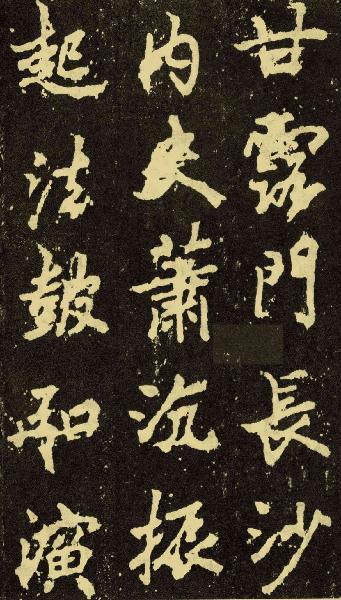 甘露門長沙
內史蕭沉振
起法皷和演